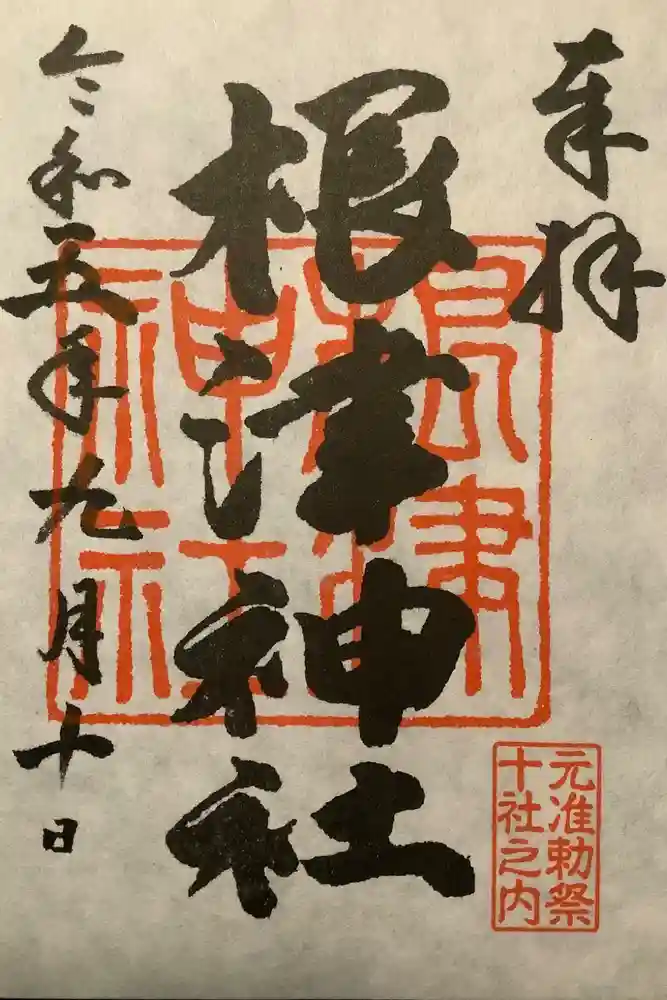 奉拝
根津神社
令和五年九月十日
根津
神社
元准勅祭
十社之内